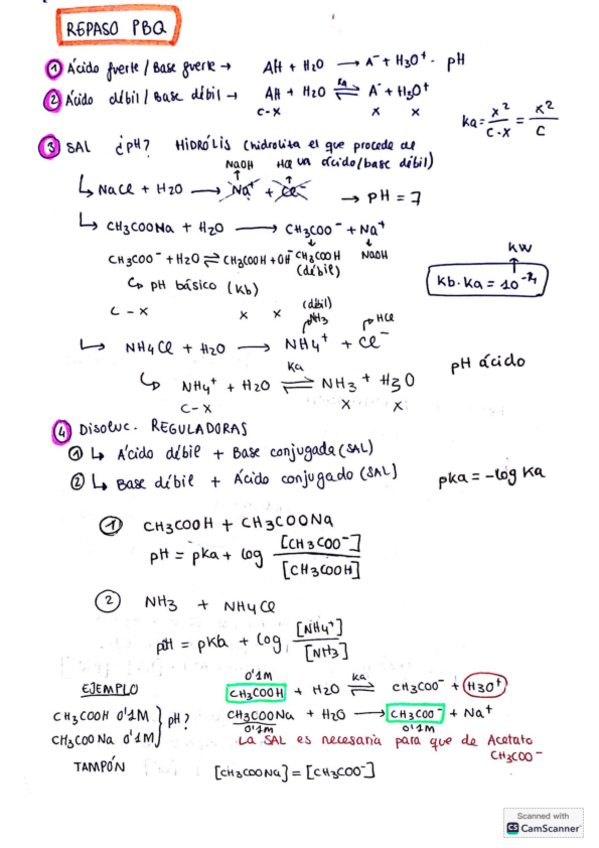 REPASO PBQ
① Ácido fuerte / Base fuerte → AH + H2O → A⁻ + H3O⁺. pH
② Ácido débil / Base débil → AH + H2O ⇌ A⁻ + H3O⁺
Ka
C-X X X
Ka = X²/C-X = X²/C
③ SAL ¿pH? HIDRÓLIS (hidroliza el que procede de un ácido/base débil)
NaOH HCl
↳ NaCl + H2O → Na⁺ + Cl⁻ → pH = 7
↳ CH3COONa + H2O → CH3COO⁻ + Na⁺
CH3COO⁻ + H2O ⇌ CH3COOH + OH⁻ CH3COOH NaOH
(débil)
↳ pH básico (Kb)
C - X X X
KW
Kb·Ka = 10⁻¹⁴
(débil)
NH3 HCl
↳ NH4Cl + H2O → NH4⁺ + Cl⁻
pH ácido
Ka
↳ NH4⁺ + H2O ⇌ NH3 + H3O
C-X X X
④ Disoluc. REGULADORAS
① ↳ Ácido débil + Base conjugada (SAL)
② ↳ Base débil + Ácido conjugado (SAL)
pKa = -log Ka
① CH3COOH + CH3COONa
pH = pKa + log [CH3COO⁻]/[CH3COOH]
② NH3 + NH4Cl
= pKb + log [NH4⁺]/[NH3]
EJEMPLO
0'1M Ka
CH3COOH + H2O ⇌ CH3COO⁻ + H3O⁺
CH3COOH 0'1M
CH3COONa 0'1M } pH?
CH3COONa + H2O → CH3COO⁻ + Na⁺
0'1M 0'1M
La SAL es necesaria para que de Acetato
CH3COO⁻
TAMPÓN [CH3COONa] = [CH3COO⁻]
Scanned with
CS CamScanner